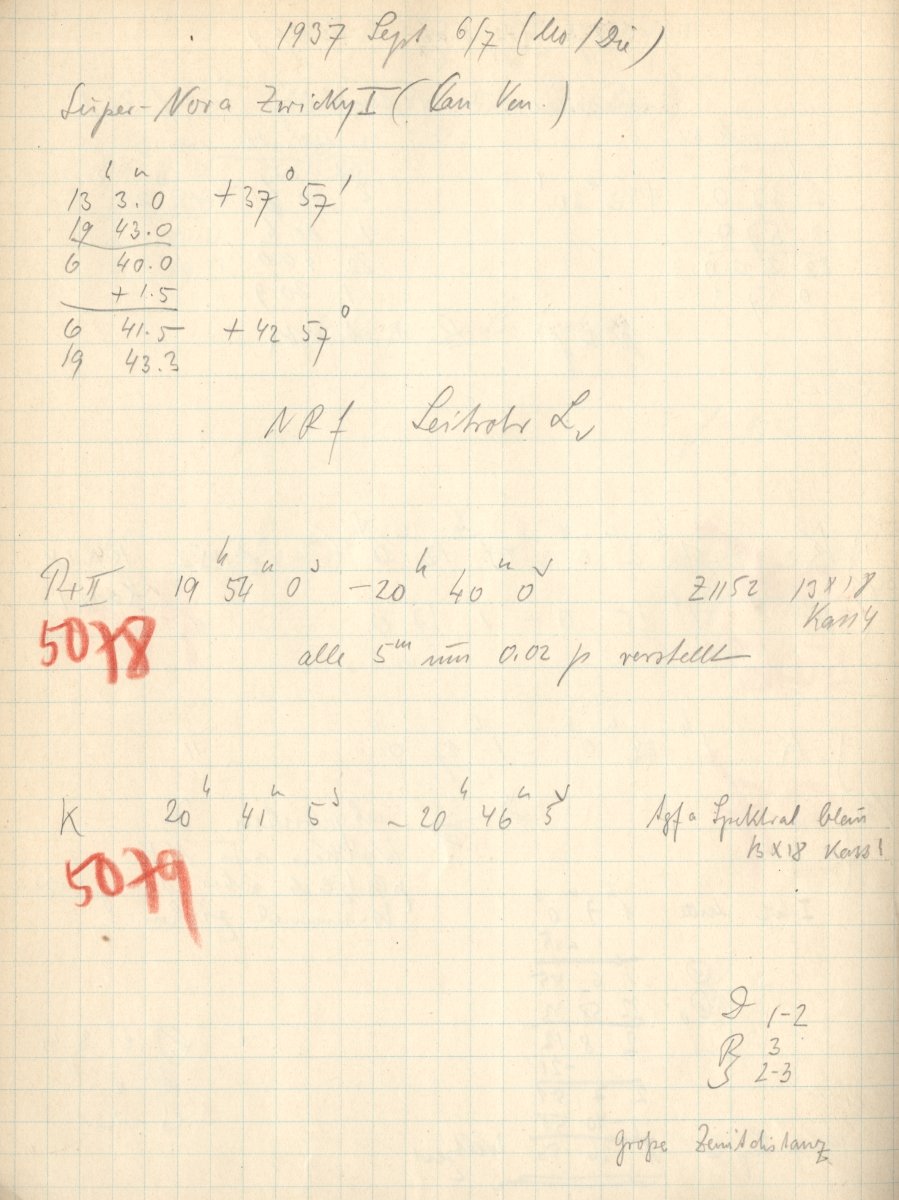 1937 Sept 6/7 (Mo/Die)
Super-Nova Zwicky I (Can Ven.)
h m
13 3.0 +37° 57'
19 43.0
6 40.0
+ 1.5
6 41.5 +42 57°
19 43.3
Leitrohr
19h 54m 0s – 20h 40m 0s Z1152 13x18
5078 Kass 4
alle 5m um 0.02 p verstellt
K 20h 41m 5s – 20h 46m 5s Agfa Spektral blau
5079 13x18 Kass 1
D 1-2
R 3
S 2-3
Große Zenitdistanz